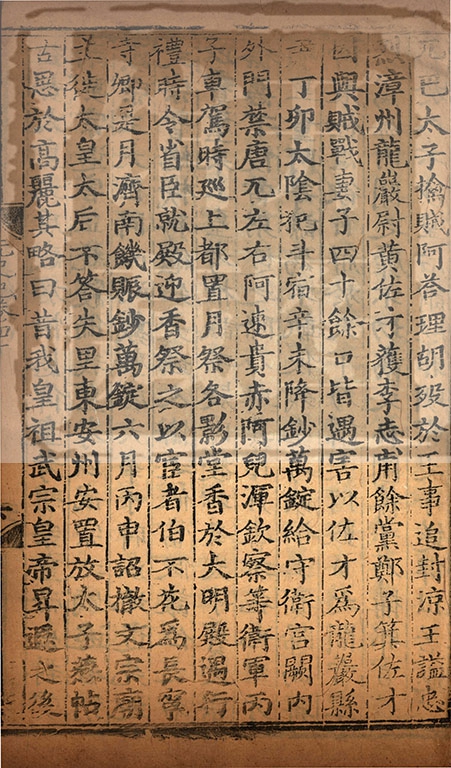 邑太子擒賊阿荅理胡歿於王事追封涼王謚忠
漳州龍巖尉黃佐才獲李志甫餘黨鄭子箕佐才
因與賊戰妻子四十餘口皆遇害以佐才爲龍巖縣
尹丁卯太陰犯斗宿辛未降鈔萬錠給守衛宮闕内
外門禁唐兀左右阿速貴赤阿兒渾欽察等衛軍丙
子車駕時巡上都置月祭各影堂香於大明殿遇行
禮時令省臣就殿迎香祭之以宦者伯不花爲長寧
寺卿是月濟南饑賑鈔萬錠六月丙申詔撤文宗廟
主徙太皇太后不答失里東安州安置放太子燕帖
古思於高麗其略曰昔我皇祖武宗皇帝昇遐之後